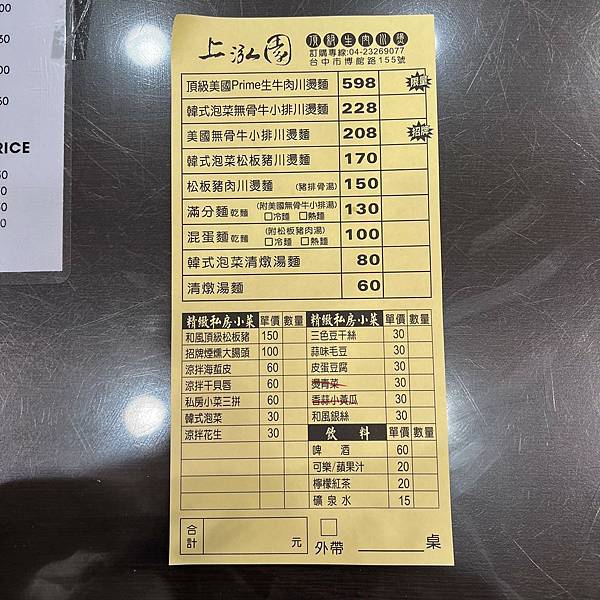 上泓園 頂級生肉川燙
訂購專線:04-23269077
台中市博館路155號
頂級美國Prime生牛肉川燙麵 598 限量
韓式泡菜無骨牛小排川燙麵 228
美國無骨牛小排川燙麵 208 招牌
韓式泡菜松板豬川燙麵 170
松板豬肉川燙麵 (豬排骨湯) 150
滿分麵乾麵 (附美國無骨牛小排湯) □冷麵 □熱麵 130
混蛋麵乾麵 (附松板豬肉湯) □冷麵 □熱麵 100
韓式泡菜清燉湯麵 80
清燉湯麵 60
精緻私房小菜 單價 數量
和風頂級松板豬 150
招牌煙燻大腸頭 100
涼拌海蜇皮 60
涼拌干貝唇 60
私房小菜三拼 60
韓式泡菜 30
涼拌花生 30
精緻私房小菜 單價 數量
三色豆干絲 30
蒜味毛豆 30
皮蛋豆腐 30
燙青菜 30
香蒜小黃瓜 30
和風銀絲 30
飲料 單價 數量
啤酒 60
可樂/蘋果汁 20
檸檬紅茶 20
礦泉水 15
合計 元
□外帶 桌
RICE